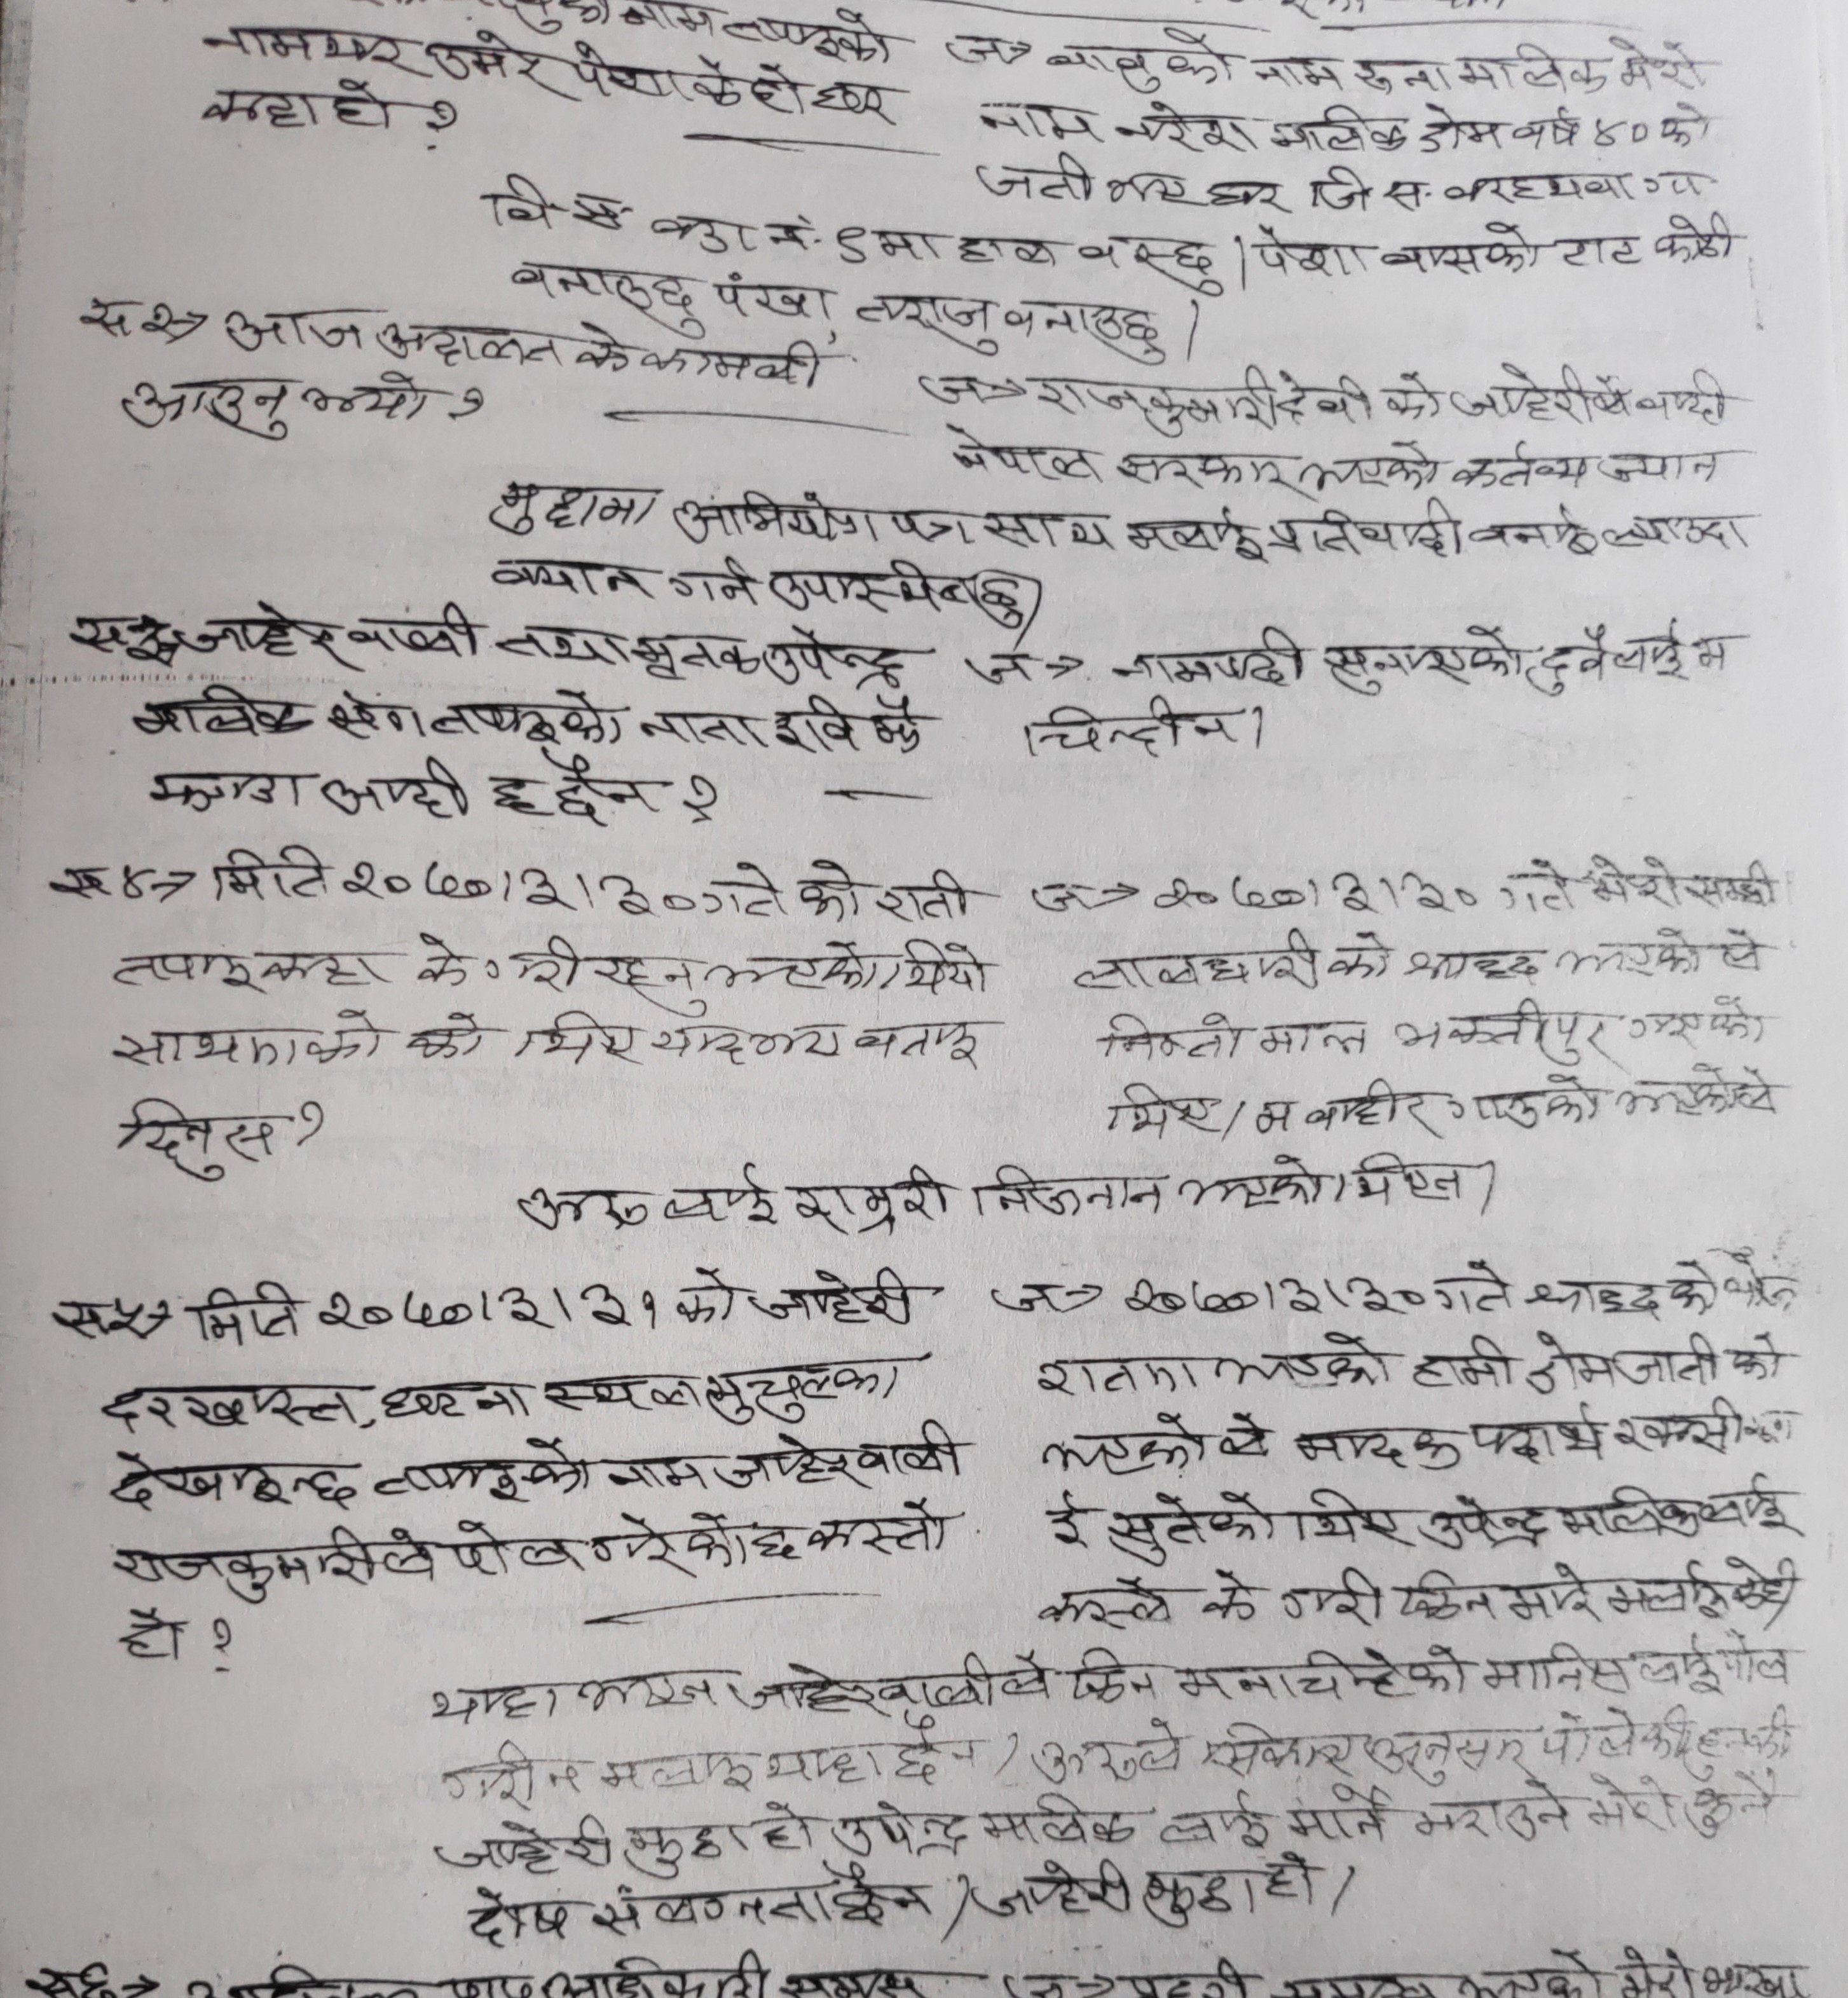 नाम तपाइको
नाम थर उमेर पेशा के हो घर
कहा हो ?
ज→ बाबुको नाम मालिक मेरो
नाम नरेश मालिक डोम वर्ष ४० को
जती भए घर जि स.
वि स वडा नं. ९ मा हाल बस्छु । पेशा बासको टाट कोठी
बनाउछु पंखा, तराजु बनाउछु ।
स २→ आज अदालत के कामली
आउनु भयो ?
ज→ राजकुमारी देवी को जाहेरीले वादी
नेपाल सरकार भएको कर्तव्य ज्यान
मुद्दामा अभियोग पत्र साथ मलाई प्रतिवादी बनाई ल्याउदा
बयान गर्न उपस्थित छु ।
स ३→ जाहेरवाली तथा मृतक उपेन्द्र
मालिक संग तपाइको नाता इवि कै
झगडा आदी छ छैन ?
ज→ नामपदी सुनाएको दुवैलाई म
चिन्दीन ।
स ४→ मिति २०७०।३।३० गते को राती
तपाइ कहा के गरी रहनु भएको थियो
साथमा को को थिए याद भए बताइ
दिनुस ?
ज→ २०७०।३।३० गते मेरो सम्धी
लालधारी को श्राद्द भएको ले
निम्तो मान्न भक्तीपुर गएको
थिए । म बाहीर गाउको भएकोले
अरु लाई राम्ररी चिनजान भएको थिएन ।
स ५→ मिति २०७०।३।३१ को जाहेरी
दरखास्त, घटना स्थल मुचुल्का
देखाइन्छ तपाइको नाम जाहेरवाली
राजकुमारीले पोल गरेको छ कस्तो
हो ?
ज→ २०७०।३।३० गते श्राद्द को भोज
रातमा भएको हामी डोम जाती को
भएको ले मादक पदार्थ रक्सी खा
ई सुतेको थिए उपेन्द्र मालिकलाई
कस्ले के गरी किन मारे मलाई केही
थाहा भएन जाहेरवालीले किन म नाचीन्हेको मानिस लाई पोल
गरीन मलाइ थाहा छैन । अरुले सिकाए अनुसार पोलेकी हुन् की
जाहेरी झुठा हो उपेन्द्र मालिक लाई मार्ने मराउने मेरो कुनै
दोष संलग्नता छैन । जाहेरी झुठा हो ।
स ६→ समक्ष
ज→ समक्ष भएको मेरो